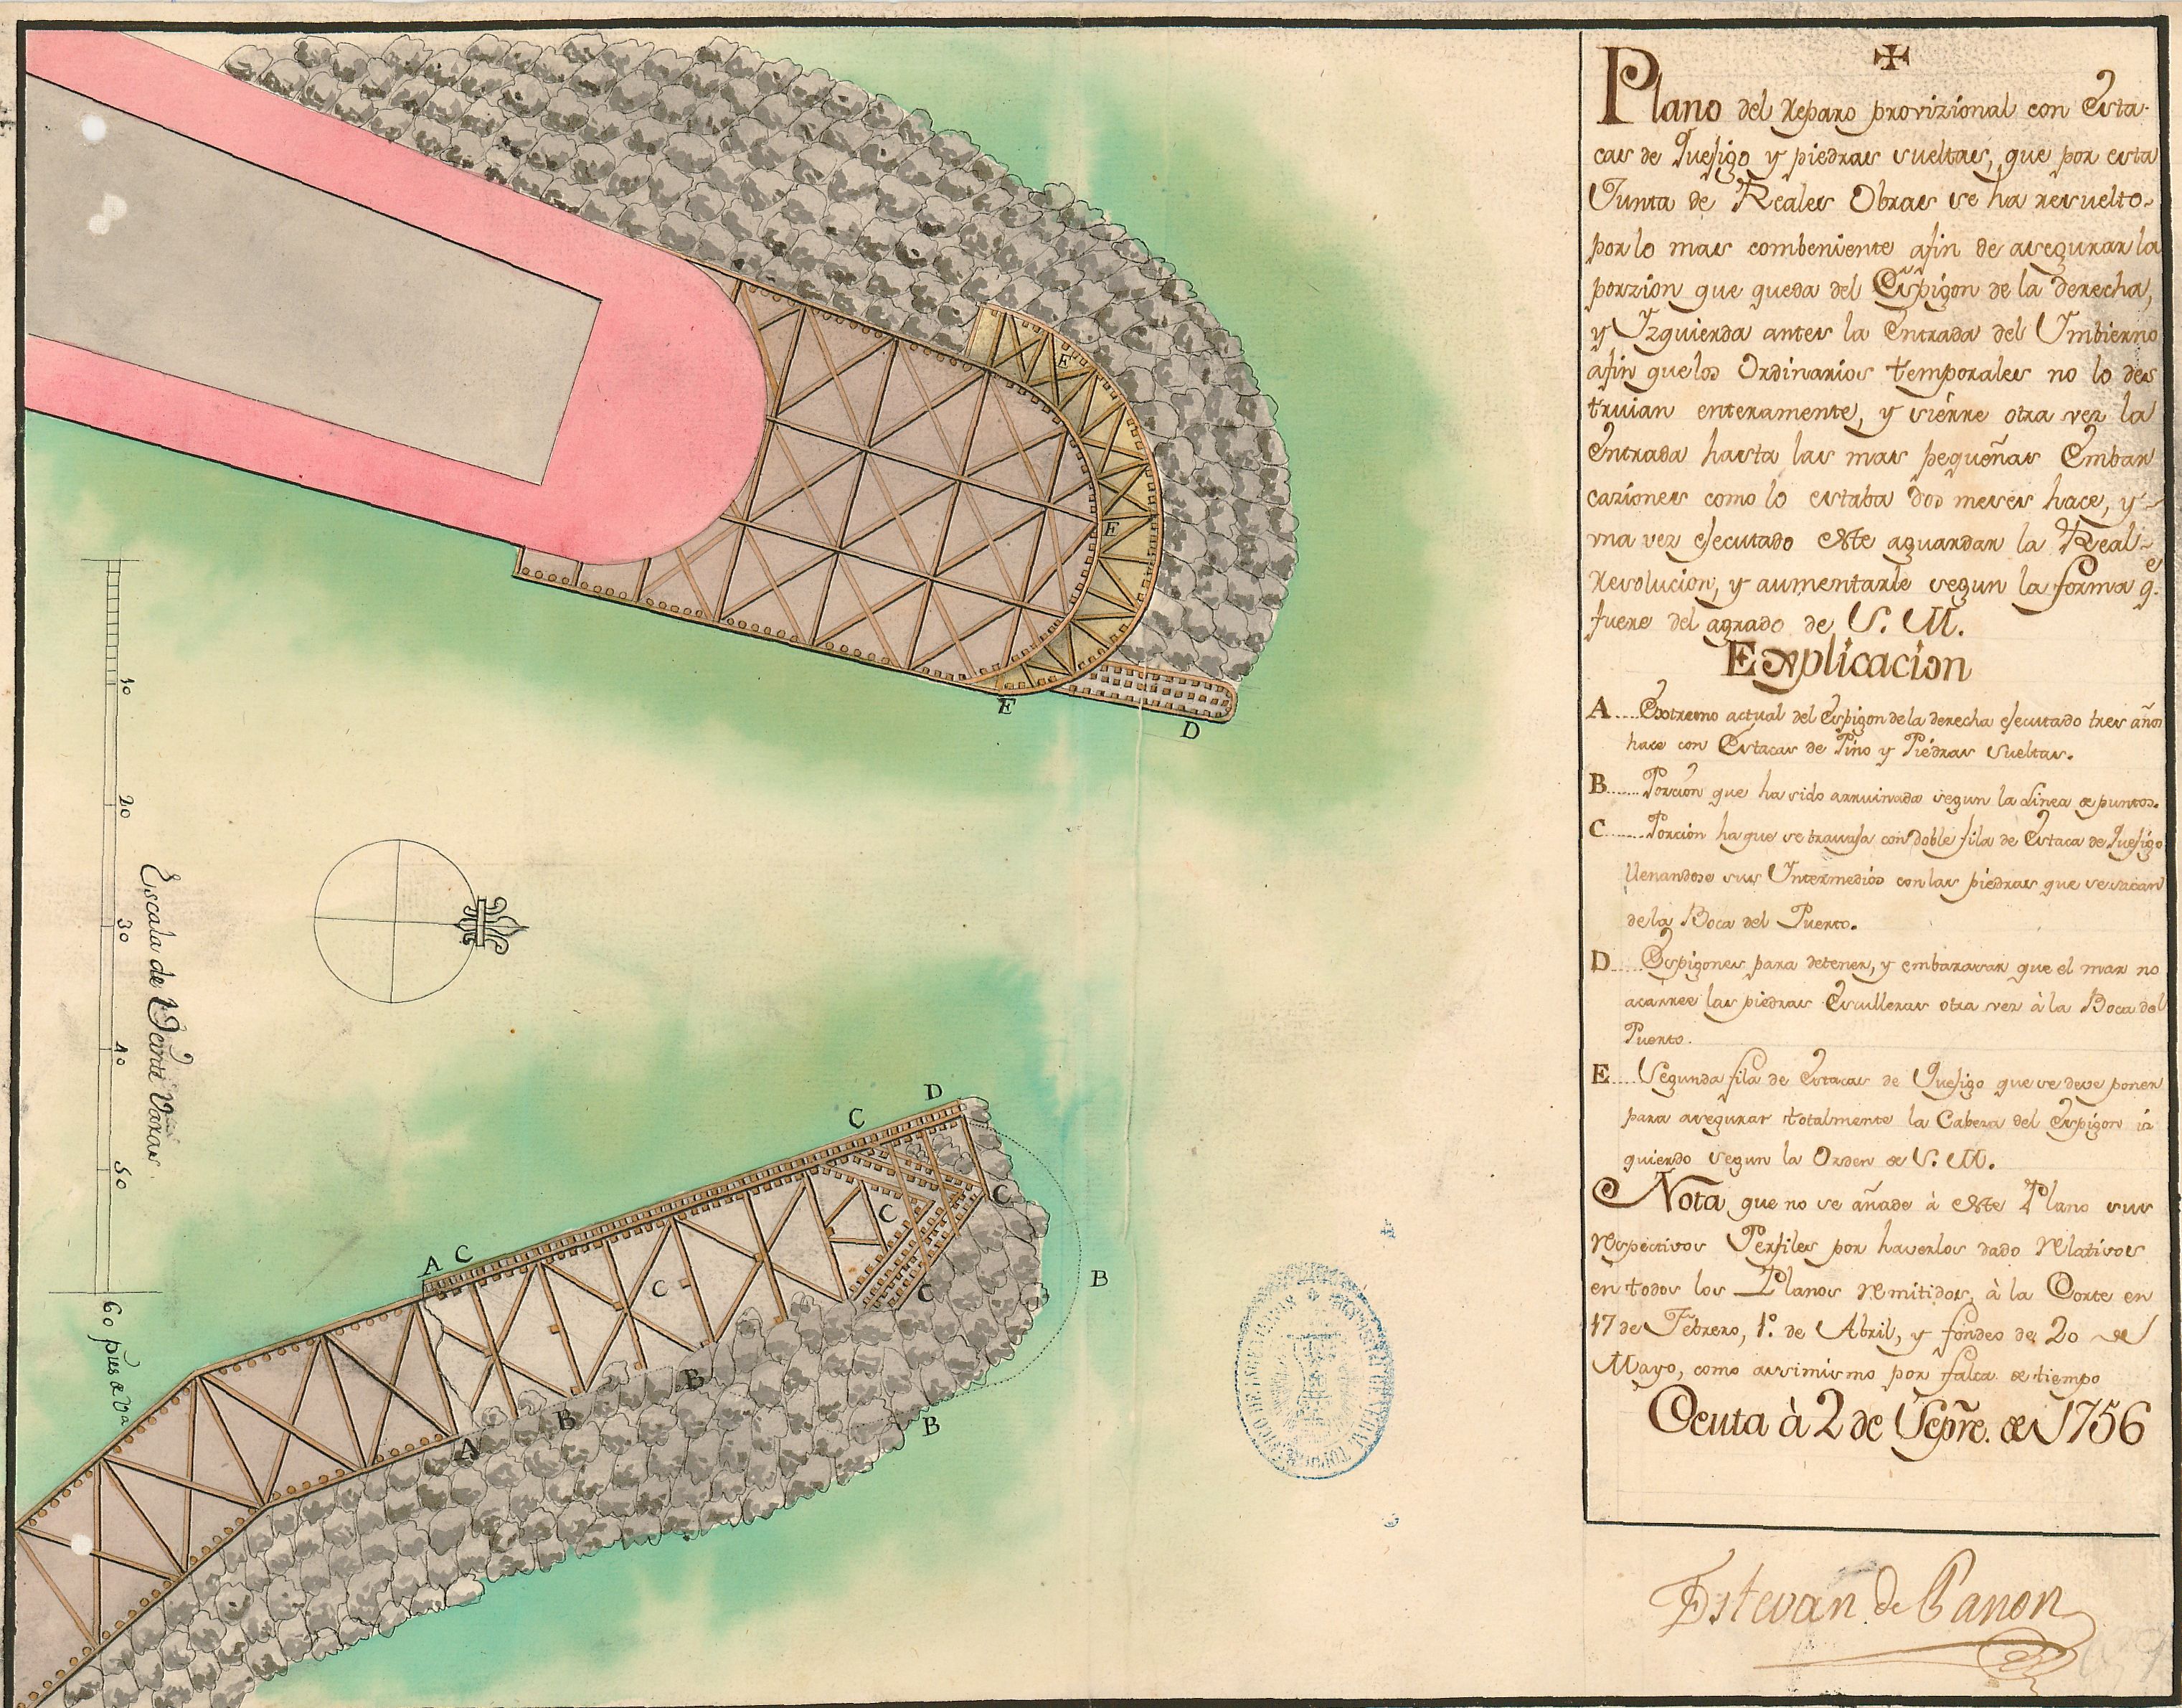 Plano del Reparo provizional con Esta-
cas de Quejigo y piedras sueltas, que por esta
Junta de Reales Obras se ha resuelto-
por lo mas combeniente afin de asegurar la
porzion que queda del Espigon de la derecha,
y Yzquierda antes la Entrada del Ymbierno
afin que los Ordinarios temporales no lo des
truian enteramente, y sierre otra vez la
Entrada hasta las mas pequeñas Embar
caziones como lo estaba dos meses hace, y-
vna vez ejecutado este aguardar la Real-
Resolucion, y aumentarle segun la forma q.e
fuere del agrado de S. M.
Explicacion
A....Extremo actual del Espigon de la derecha ejecutado tres años
hace con Estacas de Pino y Piedras Sueltas.
B......Porcion que ha sido arruinada segun la Linea de puntos.
C......Porcion ha que se travaja con doble fila de Estaca de Quejigo
llenandose sus Yntermedios con las piedras que se sacan
de la Boca del Puerto.
D....Espigones para detener, y embarasar que el mar no
acarree las piedras Escolleras otra vez à la Boca del
Puerto.
E....Segunda fila de Estacas de Quejigo que se deve poner
para asegurar totalmente la Cabeza del Espigon iz
quierdo segun la Orden de S. M.
Nota, que no se añade à este Plano sus
respectivos Perfiles por haverlos dado relativos
en todos los Planos remitidos, à la Corte en
17 de Febrero, 1.º de Abril, y fondeo de 20 de
Mayo, como assimismo por falta de tiempo
Ceuta à 2 de Sepre. de 1756
Estevan de Panon
E
E
E
D
10
20
30
40
50
60 pies de Va
Escala de Veinte Varas
D
C
C
C
A C
C
C
B
B
B
B
A